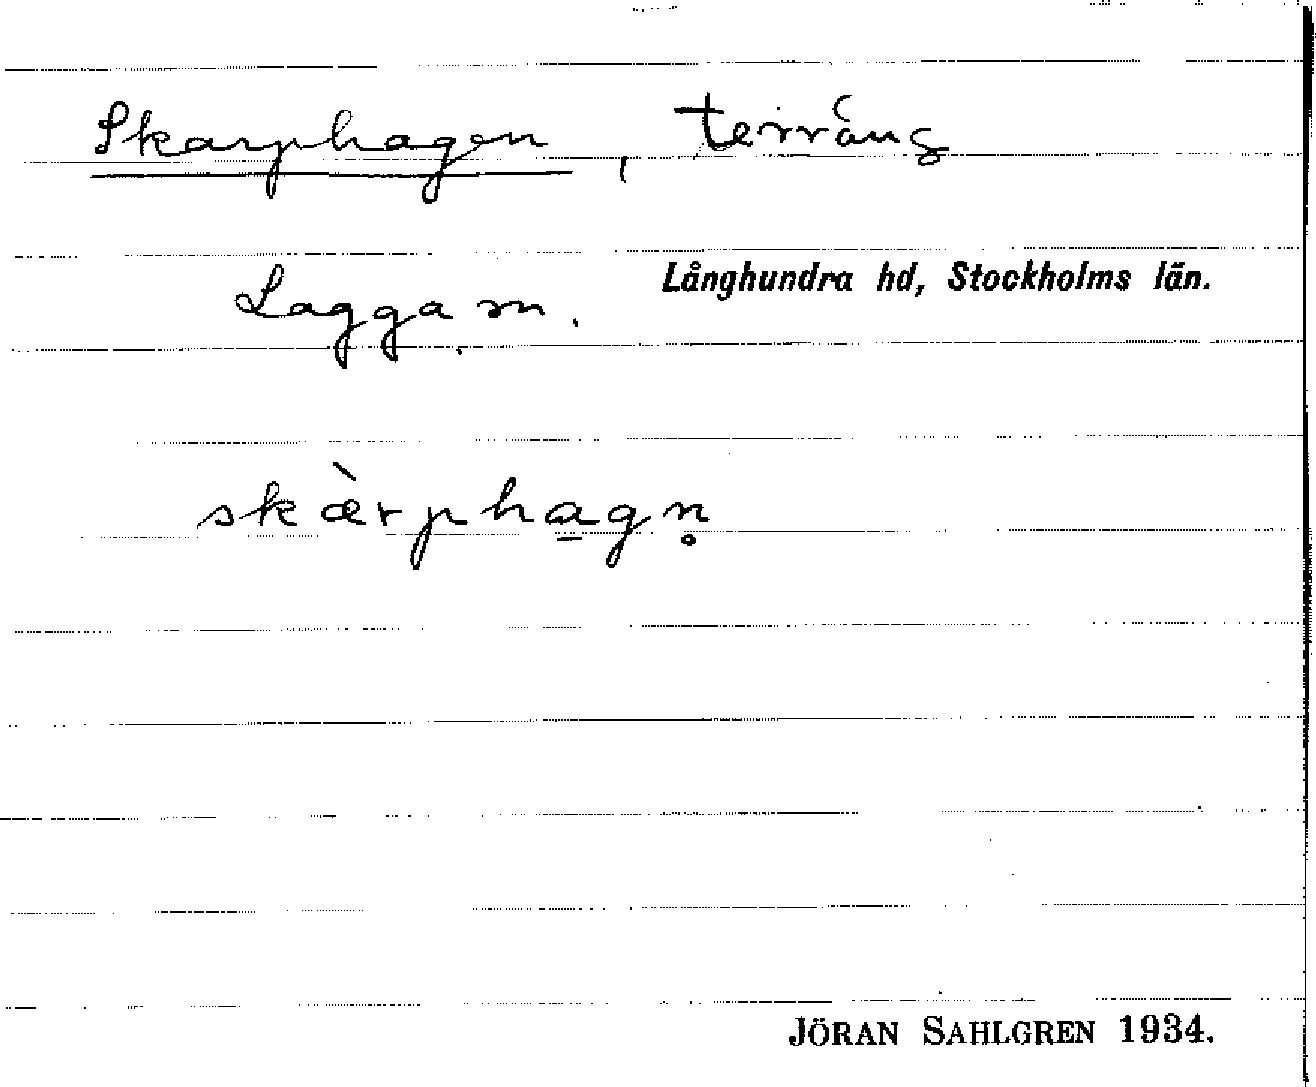 Skarphagen, terräng
Långhundra hd, Stockholms län.
Lagga sn.
skæ̀rpha̲gn̥
JÖRAN SAHLGREN 1934.